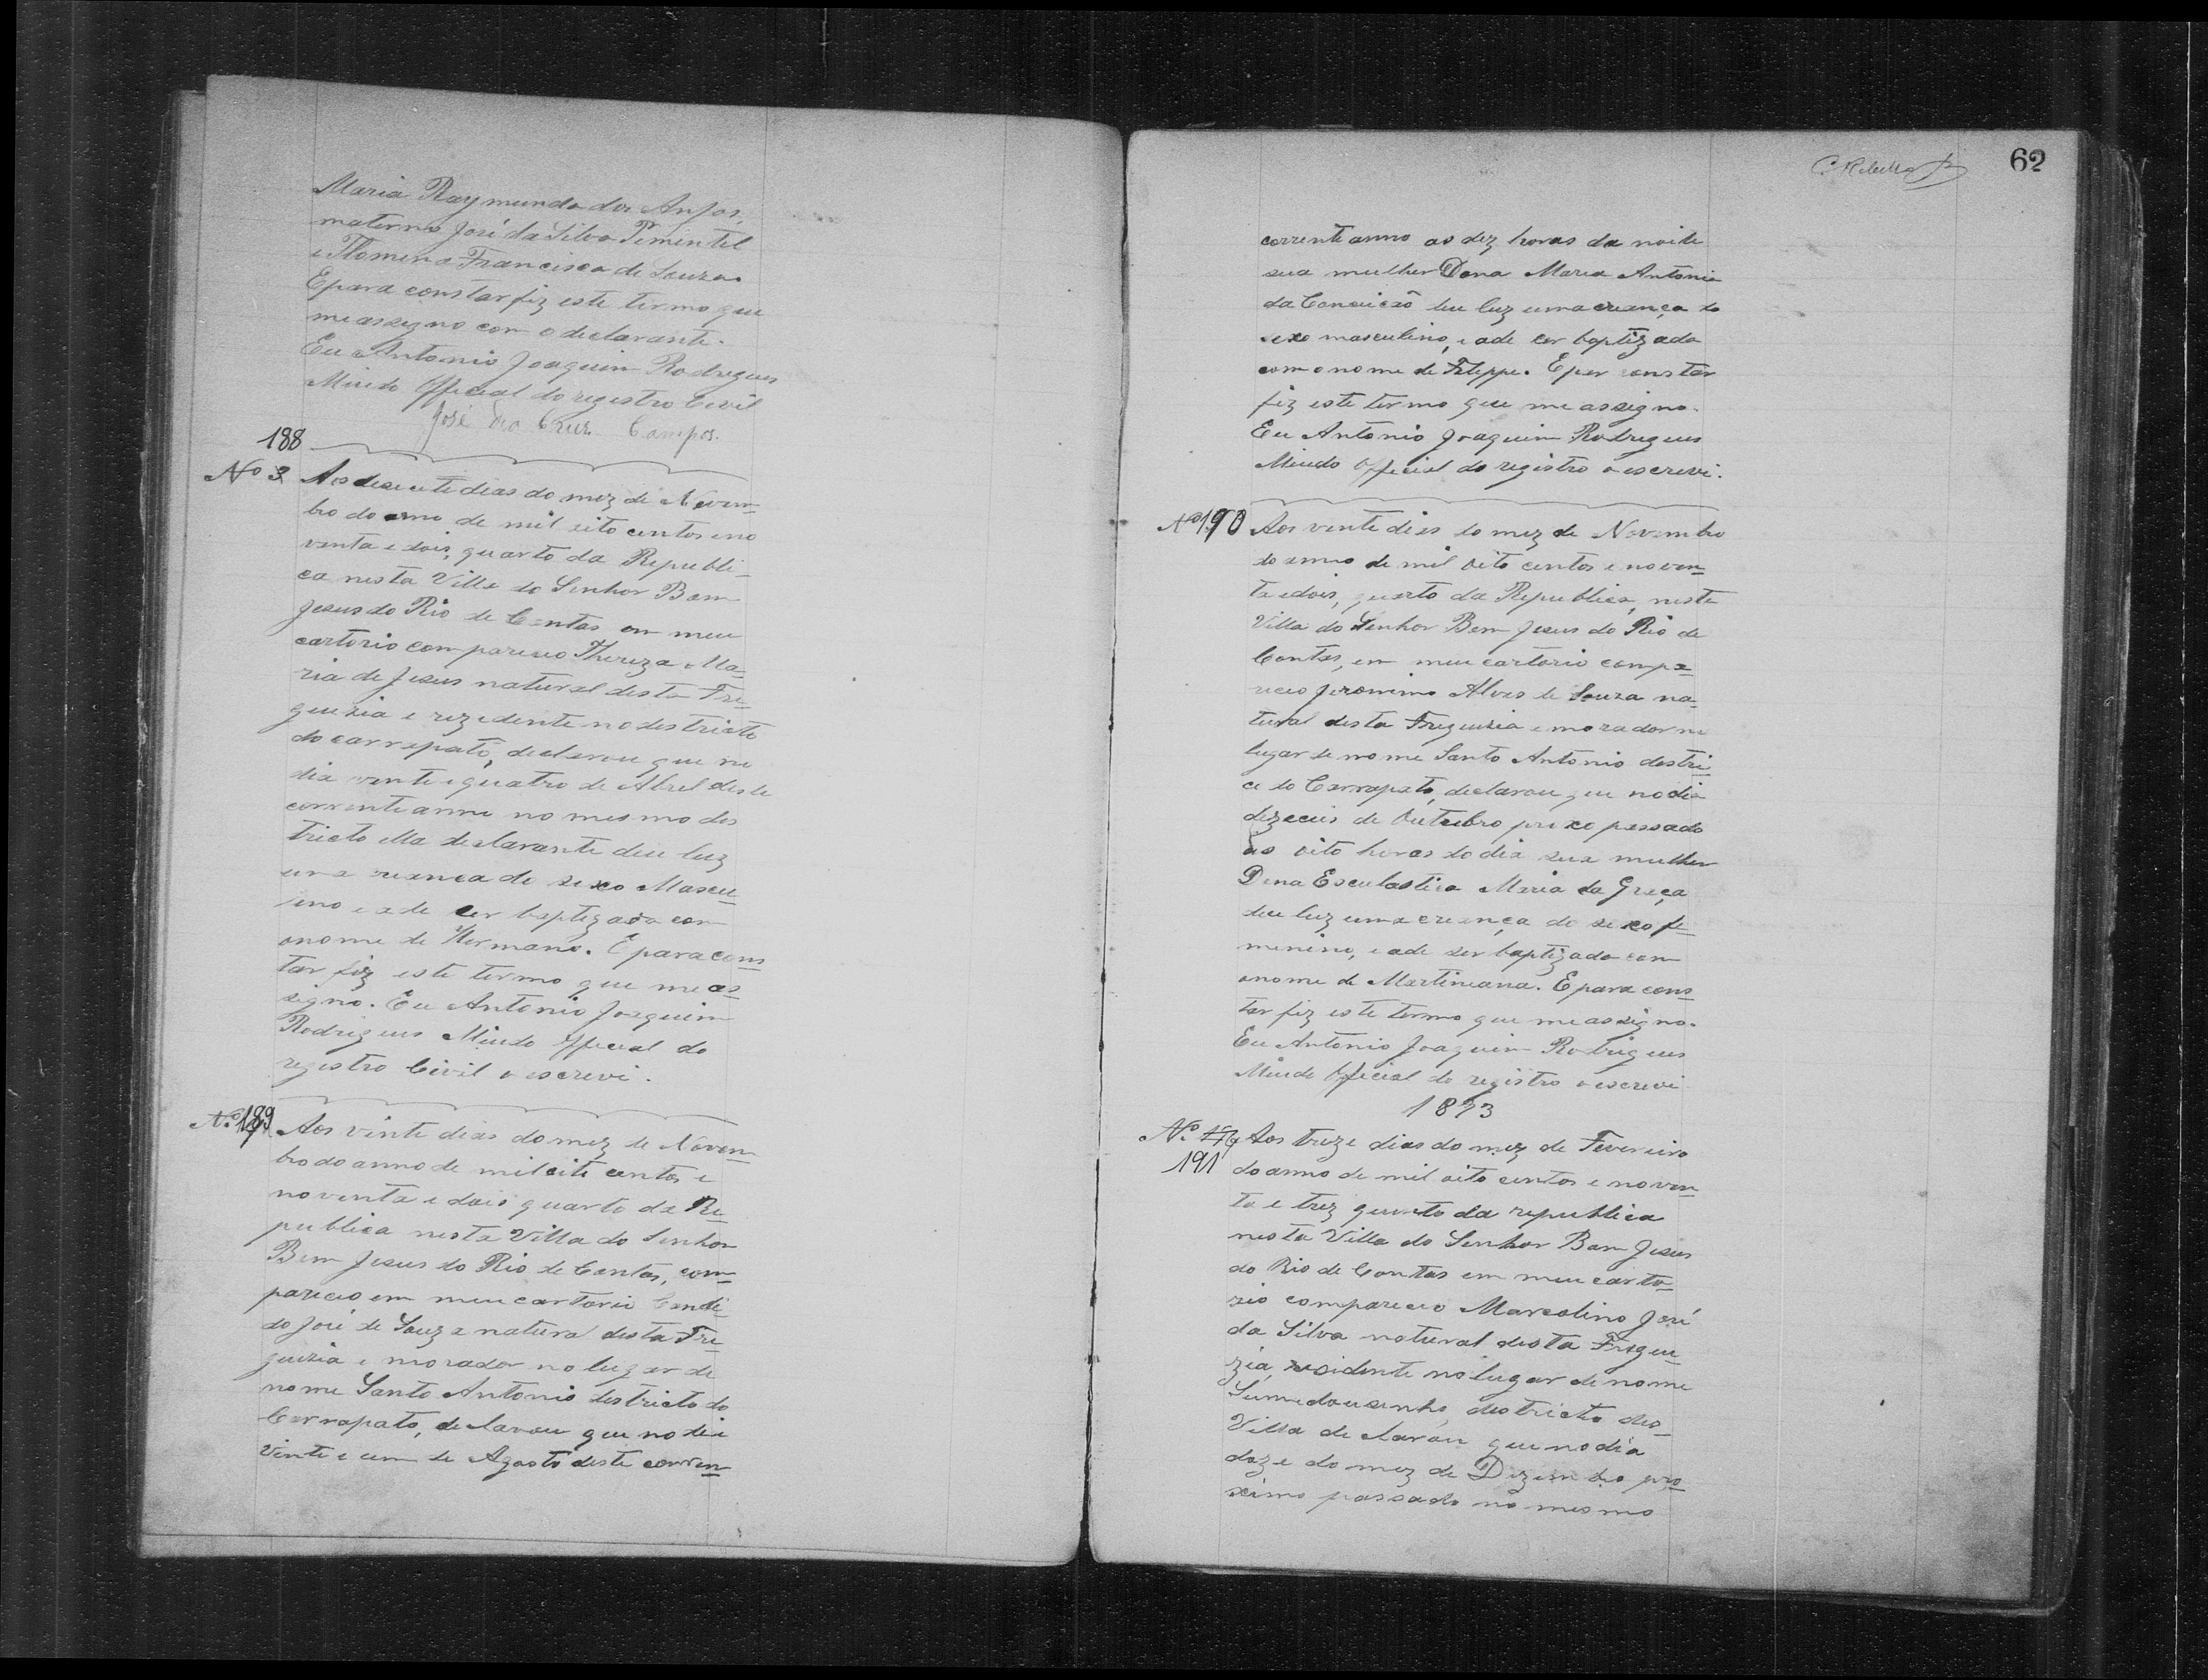 Maria Raymunda dos Anjos,
materno José da Silva Pimentel
e Flomena Francisca de Souza.
E para constar fiz este termo que
me assegno com o declarante.
Eu Antonio Joaquim Rodrigues
Miudo Official do registro Civil
José da Cruz Campos.
188
Nº 3 Aos desecete dias do mez de Novem-
bro do anno de mil oito centos e no
venta e dois, quarto da Republi-
ca nesta Villa do Senhor Bom
Jesus do Rio de Contas em meu
cartorio compareceo Thereza Ma-
ria de Jesus natural desta Fre-
guezia e rezedente no destricto
do carrapato, declarou que no
dia vente e quatro de Abrel deste
corrente anno no mesmo des
tricto ella declarante deu luz
uma creança do sexo Mascu
lino e ade cer baptezada com
o nome de Hermano. E para cons-
tar fiz este termo que me as-
signo. Eu Antonio Joaquim
Rodrigues Miudo Official do
registro Civil o escrevi.
Nº 189 Aos vinte dias do mez de Novem-
bro do anno de mil oito centos e
noventa e dois quarto da Re-
publica nesta Villa do Senhor
Bom Jesus do Rio de Contas, com-
pareceo em meu cartorio Candi-
do José de Souza natural desta Fre-
guezia e morador no lugar de
nome Santo Antonio destricto do
Carrapato, declarou que no dia
Vinte e um de Agosto deste corren-
62
corrente anno as dez horas da noite
sua mulher Dona Maria Antonia
da Conceicão deu luz uma creança do
sexo masculino, e ade cer baptizada
com o nome de Felippe. E per constar
fiz este termo que me assigno.
Eu Antonio Joaquim Rodrigues
Miudo Official do registro o escrevi.
Nº 190 Aos vente dias do mez de Novembro
do anno de mil oito centos e noven-
ta e dois, quarto da Republica, nesta
Villa do Senhor Bom Jesus do Rio de
Contas, em meu cartorio compa-
receo Jeronimo Alves de Souza na-
tural desta Freguezia e morador no
lugar de nome Santo Antonio destri-
co do Carrapato, declarou que no dia
dezeceis de Outubro proxo passado
as oito horas do dia sua mulher
Dona Esculastica Maria da Graça
deu luz uma creança do sexo fe-
menino, e ade ser baptizada com
o nome de Martineana. E para cons-
tar fiz este termo que me assigno.
Eu Antonio Joaquim Rodrigues
Miudo Official do registro o escrevi
1893
Nº Aos treze dias do mez de Fevereiro
191 do anno de mil oito centos e noven-
ta e trez quinto da republica
nesta Villa do Senhor Bom Jesus
do Rio de Contas em meu carto-
rio compareceo Marcolino José
da Silva natural desta Fregue-
zia, residente no lugar de nome
destricto des-
Villa declarou que no dia
doze do mez de Dezembro pro-
ximo passado no mesmo